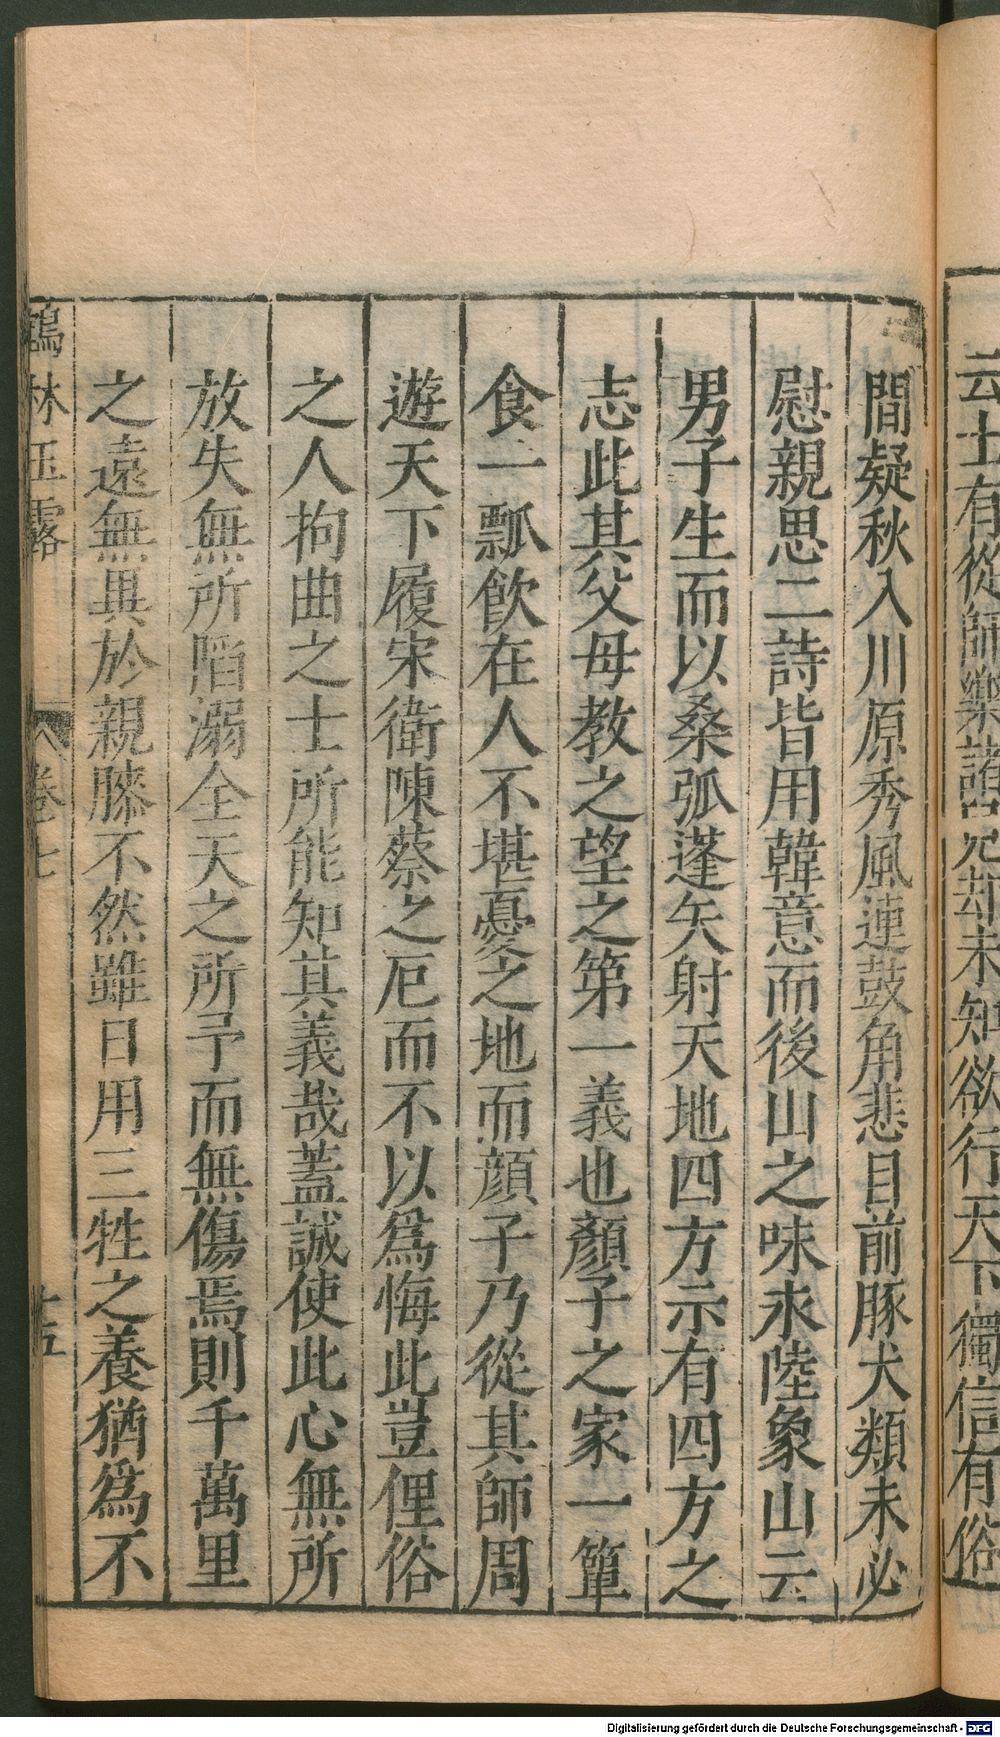 云士有從師樂諸兄却未知欲行天下獨信有俗
間疑秋入川原秀風連鼓角悲目前豚犬類未必
慰親思二詩皆用韓意而後山之味永陸象山云
男子生而以桑弧蓬矢射天地四方示有四方之
志此其父母教之望之第一義也顏子之家一簞
食一瓢飲在人不堪憂之地而顏子乃從其師周
遊天下履宋衛陳蔡之厄而不以爲悔此豈俚俗
之人拘曲之士所能知其義哉蓋誠使此心無所
放失無所陷溺全天之所予而無傷焉則千萬里
之遠無異於親膝不然雖日用三牲之養猶爲不
鶴林玉露 卷七 十五
Digitalisierung gefördert durch die Deutsche Forschungsgemeinschaft - DFG